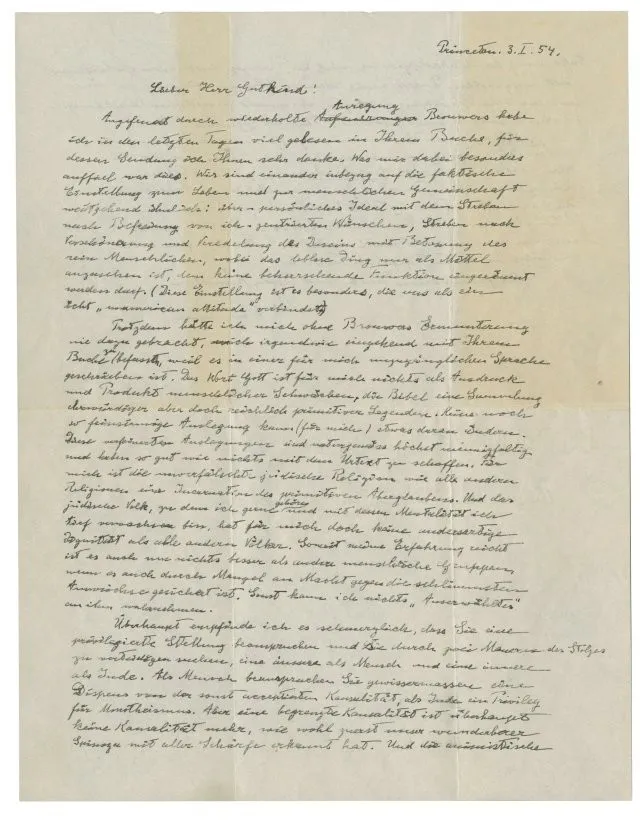 Princeton. 3. I. 54.
Lieber Herr Gutkind!
Anregung
Angefeuert durch wiederholte Brouwers habe
ich in den letzten Tagen viel gelesen in Ihrem Buche, für
dessen Sendung ich Ihnen sehr danke. Was mir dabei besonders
auffiel war dies. Wir sind einander inbezug auf die faktische
Einstellung zum Leben und zur menschlichen Gemeinschaft
weitgehend ähnlich: persönliches Ideal mit dem Streben
nach Befreiung von ich-zentrierten Wünschen, Streben nach
Verschönerung und Veredelung des Daseins mit Betonung des
rein Menschlichen, wobei das leblose Ding nur als Mittel
anzusehen ist, dem keine beherrschende Funktion eingeräumt
werden darf. (Diese Einstellung ist es besonders, die uns als ein
echt „unamerican attitude" verbindet)
Trotzdem hätte ich mich ohne Brouwers Ermunterung
nie dazu gebracht, mich irgendwie eingehend mit Ihrem
Buche zu befassen, weil es in einer für mich unzugänglichen Sprache
geschrieben ist. Das Wort Gott ist für mich nichts als Ausdruck
und Produkt menschlicher Schwächen, die Bibel eine Sammlung
ehrwürdiger aber doch reichlich primitiver Legenden. Keine noch
so feinsinnige Auslegung kann (für mich) etwas daran ändern.
Diese verfeinerten Auslegungen sind naturgemäss höchst mannigfaltig
und haben so gut wie nichts mit dem Urtext zu schaffen. Für
mich ist die unverfälschte jüdische Religion wie alle anderen
Religionen eine Incarnation des primitiven Aberglaubens. Und das
jüdische Volk, zu dem ich gerne gehöre und mit dessen Mentalität ich
tief verwachsen bin, hat für mich doch keine andersartige
Dignität als alle anderen Völker. Soweit meine Erfahrung reicht
ist es auch um nichts besser als andere menschliche Gruppen,
wenn es auch durch Mangel an Macht gegen die schlimmsten
Auswüchse gesichert ist. Sonst kann ich nichts „Auserwähltes"
an ihm wahrnehmen.
Überhaupt empfinde ich es schmerzlich, dass Sie eine
privilegierte Stellung beanspruchen und sie durch zwei Mauern des Stolzes
zu verteidigen suchen, eine äussere als Mensch und eine innere
als Jude. Als Mensch beanspruchen Sie gewissermassen einen
Dispens von der sonst acceptierten Kausalität, als Jude ein Privileg
für Monotheismus. Aber eine begrenzte Kausalität ist überhaupt
keine Kausalität mehr, wie wohl zuerst unser wunderbarer
Spinoza mit aller Schärfe erkannt hat. Und die animistische